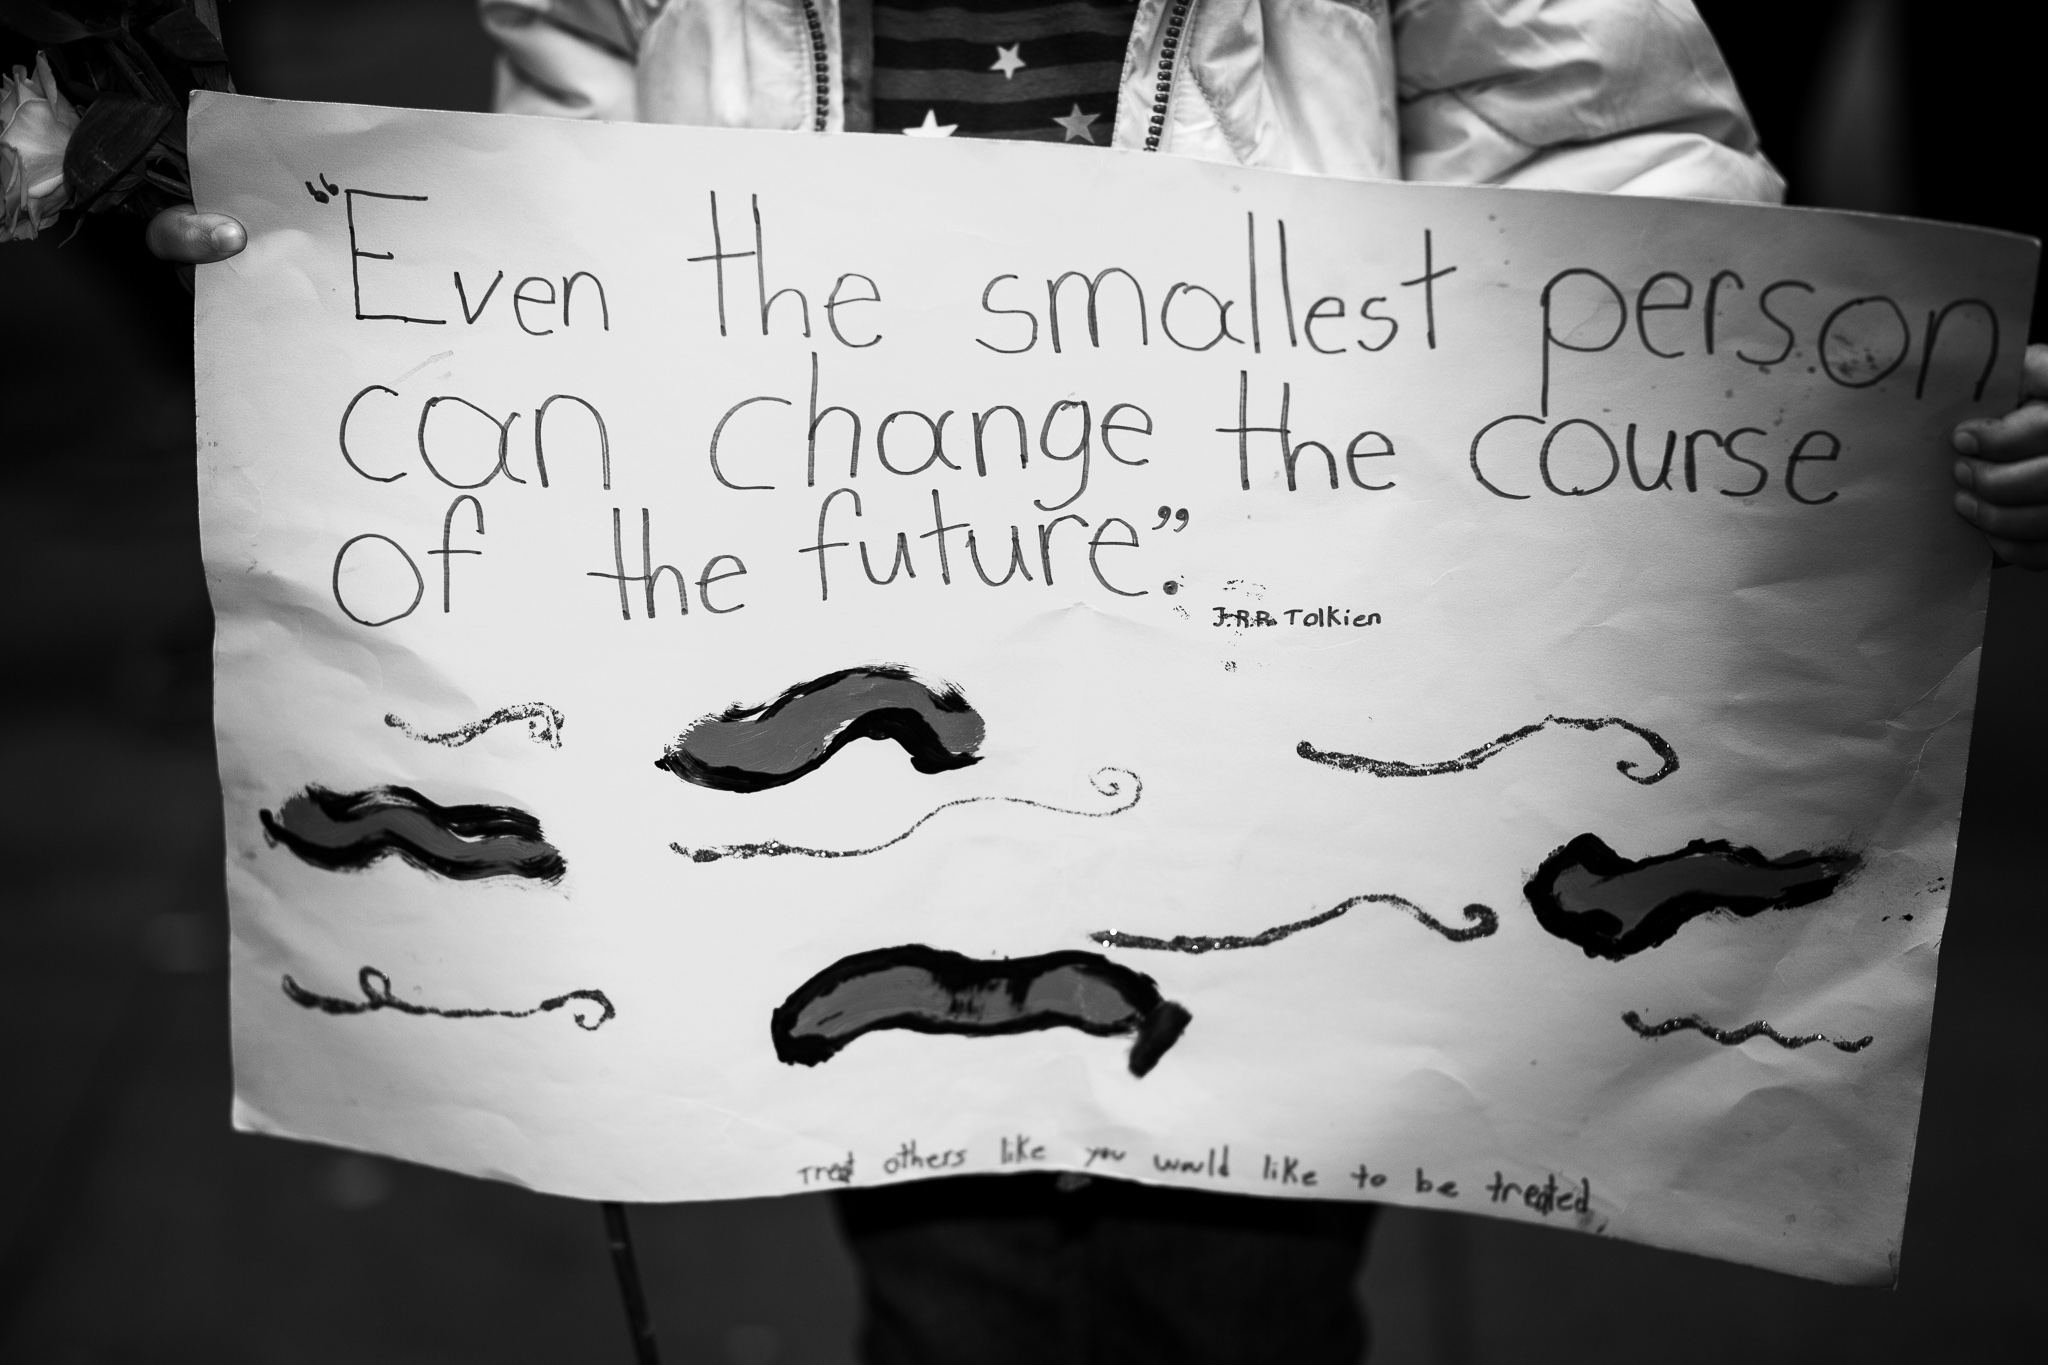 “Even the smallest person
can change the course
of the future”.
J.R.R. Tolkien
Treat others like you would like to be treated.